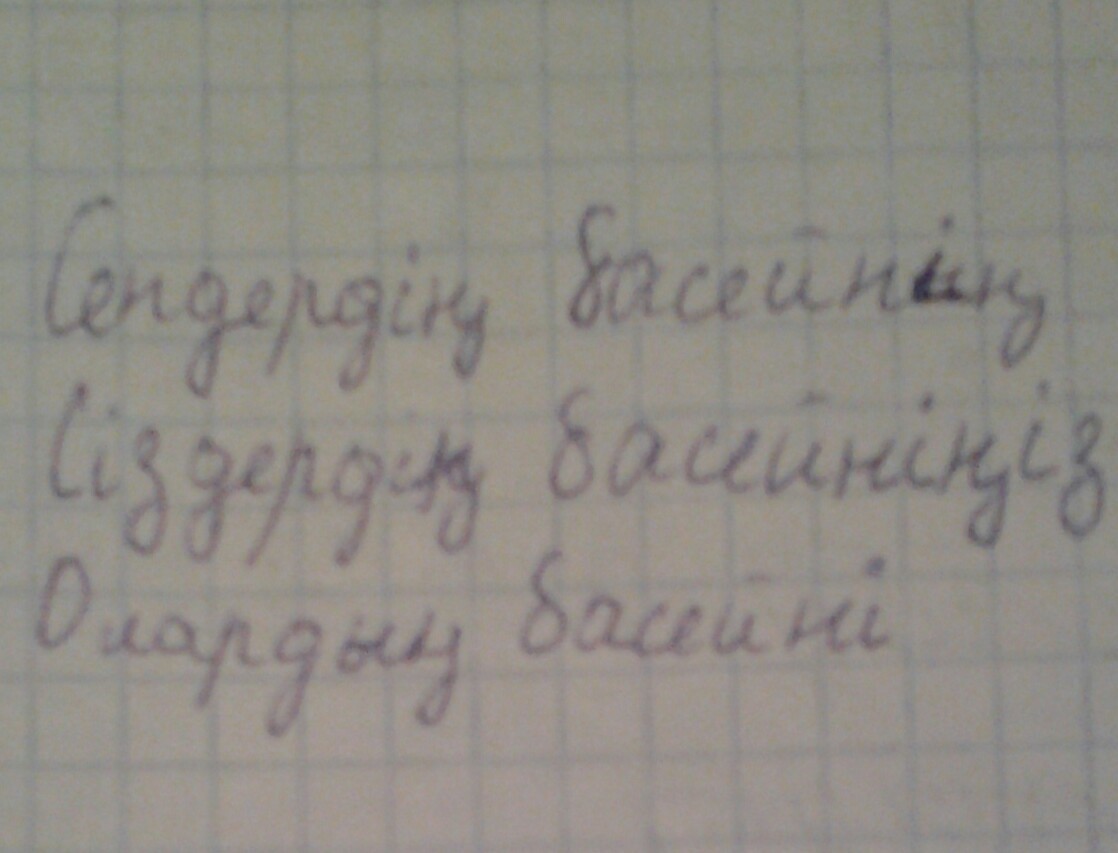 Сендердің басейнің
Сіздердің басейніңіз
Олардың басейні